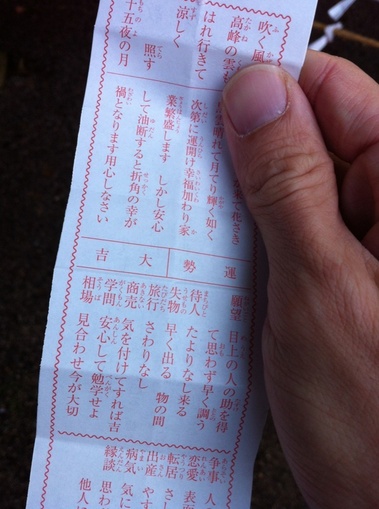 吹く風
高峰の雲も
はれ行きて
涼しく照す
十五夜の月
花さき
晴れて月てり輝く如く
次第に運開け幸福加わり家
業繁盛します しかし安心
して油断すると折角の幸が
禍となります用心しなさい
運勢 大吉
願望 目上の人の助を得
て思わず早く調う
待人 たよりなし来る
失物 早く出る 物の間
旅行 さわりなし
商売 気を付けてすれば吉
学問 安心して勉学せよ
相場 見合わせ今が大切
争事 人
恋愛 表
転居 さし
出産 やす
病気 気に
縁談 思わ
他人